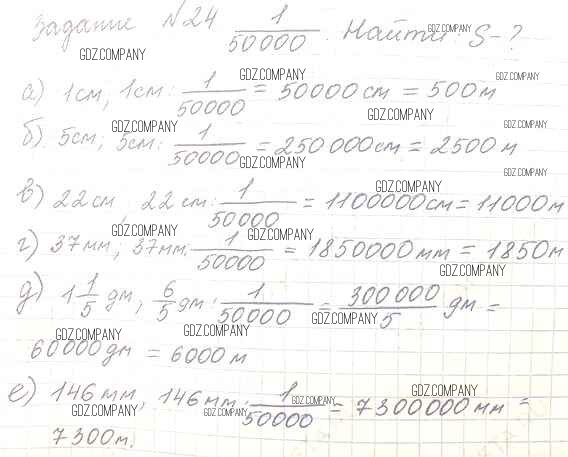 Задание №24 1/50000. Найти: S-?
GDZ.COMPANY GDZ.COMPANY
а) 1см, 1см : 1/50000 = 50000 см = 500 м
GDZ.COMPANY GDZ.COMPANY GDZ.COMPANY
б) 5см; 5см: 1/50000 = 250 000 см = 2500 м
GDZ.COMPANY GDZ.COMPANY GDZ.COMPANY
в) 22 см, 22 см : 1/50000 = 1100000 см = 11000 м
GDZ.COMPANY GDZ.COMPANY
г) 37 мм; 37 мм. 1/50000 = 1850000 мм = 1850 м
GDZ.COMPANY GDZ.COMPANY GDZ.COMPANY
д) 1 1/5 дм, 6/5 дм : 1/50000 = 300 000/5 дм =
GDZ.COMPANY GDZ.COMPANY GDZ.COMPANY
60000 дм = 6000 м
е) 146 мм, 146 мм : 1/50000 = 7300000 мм =
GDZ.COMPANY GDZ.COMPANY GDZ.COMPANY GDZ.COMPANY
7300 м.